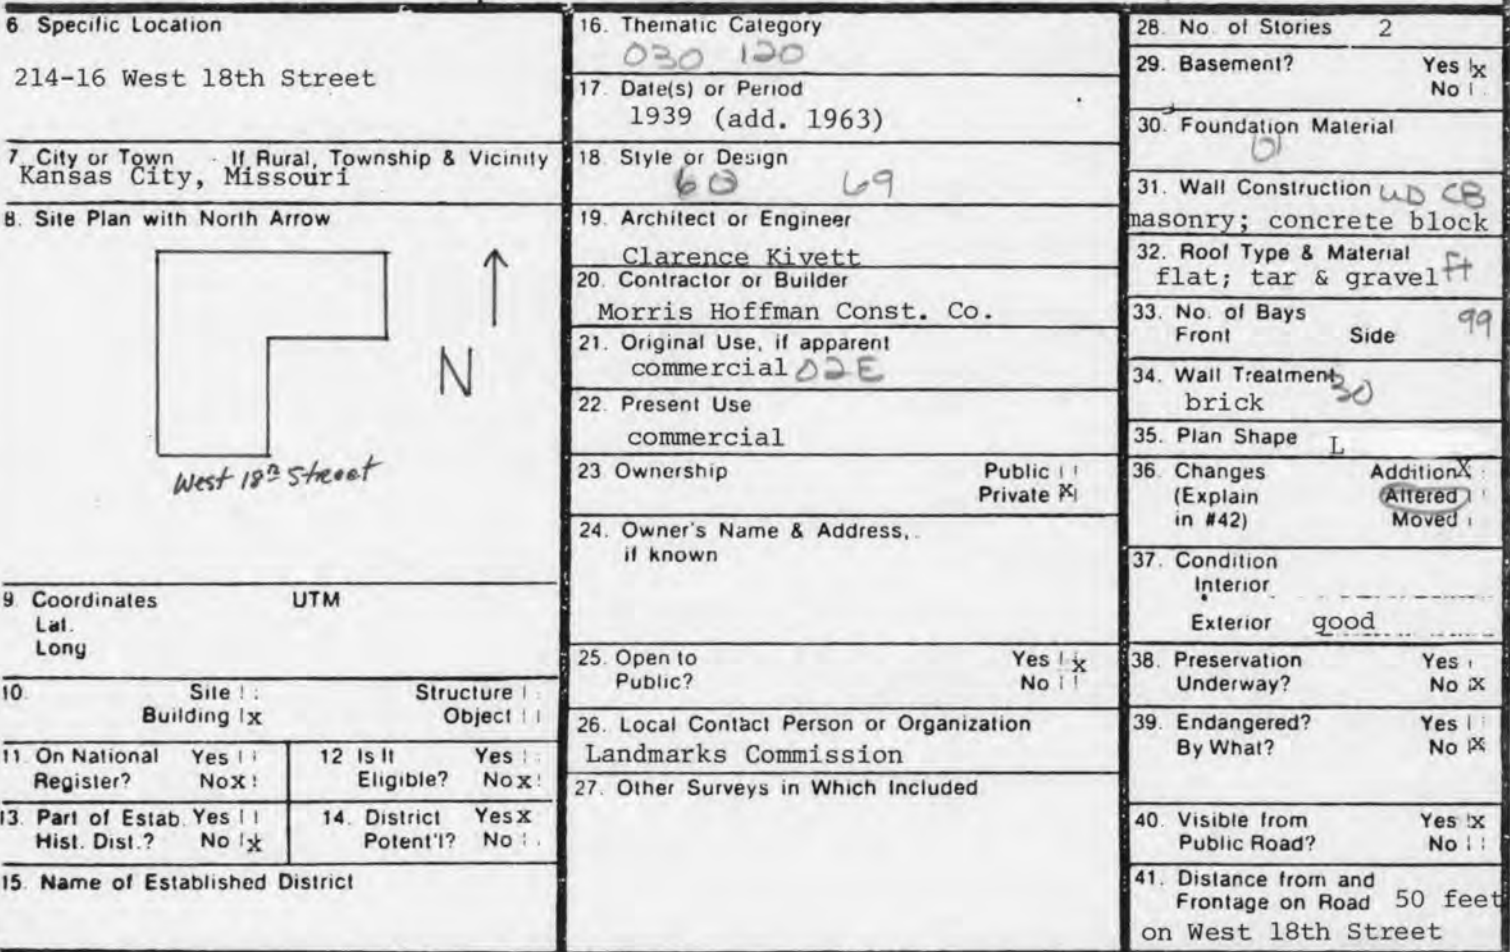 6 Specific Location
214-16 West 18th Street
7. City or Town If Rural, Township & Vicinity
Kansas City, Missouri
8. Site Plan with North Arrow
N
West 18th Street
9. Coordinates UTM
Lat.
Long
10. Site Structure
Building x Object
11. On National Yes
Register? No x
12 Is It Yes
Eligible? No x
13. Part of Estab. Yes
Hist. Dist.? No x
14. District Yes x
Potent'l? No
15. Name of Established District
16. Thematic Category
030 120
17. Date(s) or Period
1939 (add. 1963)
18. Style or Design
60 69
19. Architect or Engineer
Clarence Kivett
20. Contractor or Builder
Morris Hoffman Const. Co.
21. Original Use, if apparent
commercial 02E
22. Present Use
commercial
23. Ownership Public
Private X
24. Owner's Name & Address,
if known
25. Open to Yes x
Public? No
26. Local Contact Person or Organization
Landmarks Commission
27. Other Surveys in Which Included
28. No. of Stories 2
29. Basement? Yes x
No
30. Foundation Material
31. Wall Construction CB
masonry; concrete block
32. Roof Type & Material
flat; tar & gravel ft
33. No. of Bays 99
Front Side
34. Wall Treatment 30
brick
35. Plan Shape L
36. Changes Addition X
(Explain Altered
in #42) Moved
37. Condition
Interior
Exterior good
38. Preservation Yes
Underway? No X
39. Endangered? Yes
By What? No X
40. Visible from Yes x
Public Road? No
41. Distance from and
Frontage on Road 50 feet
on West 18th Street